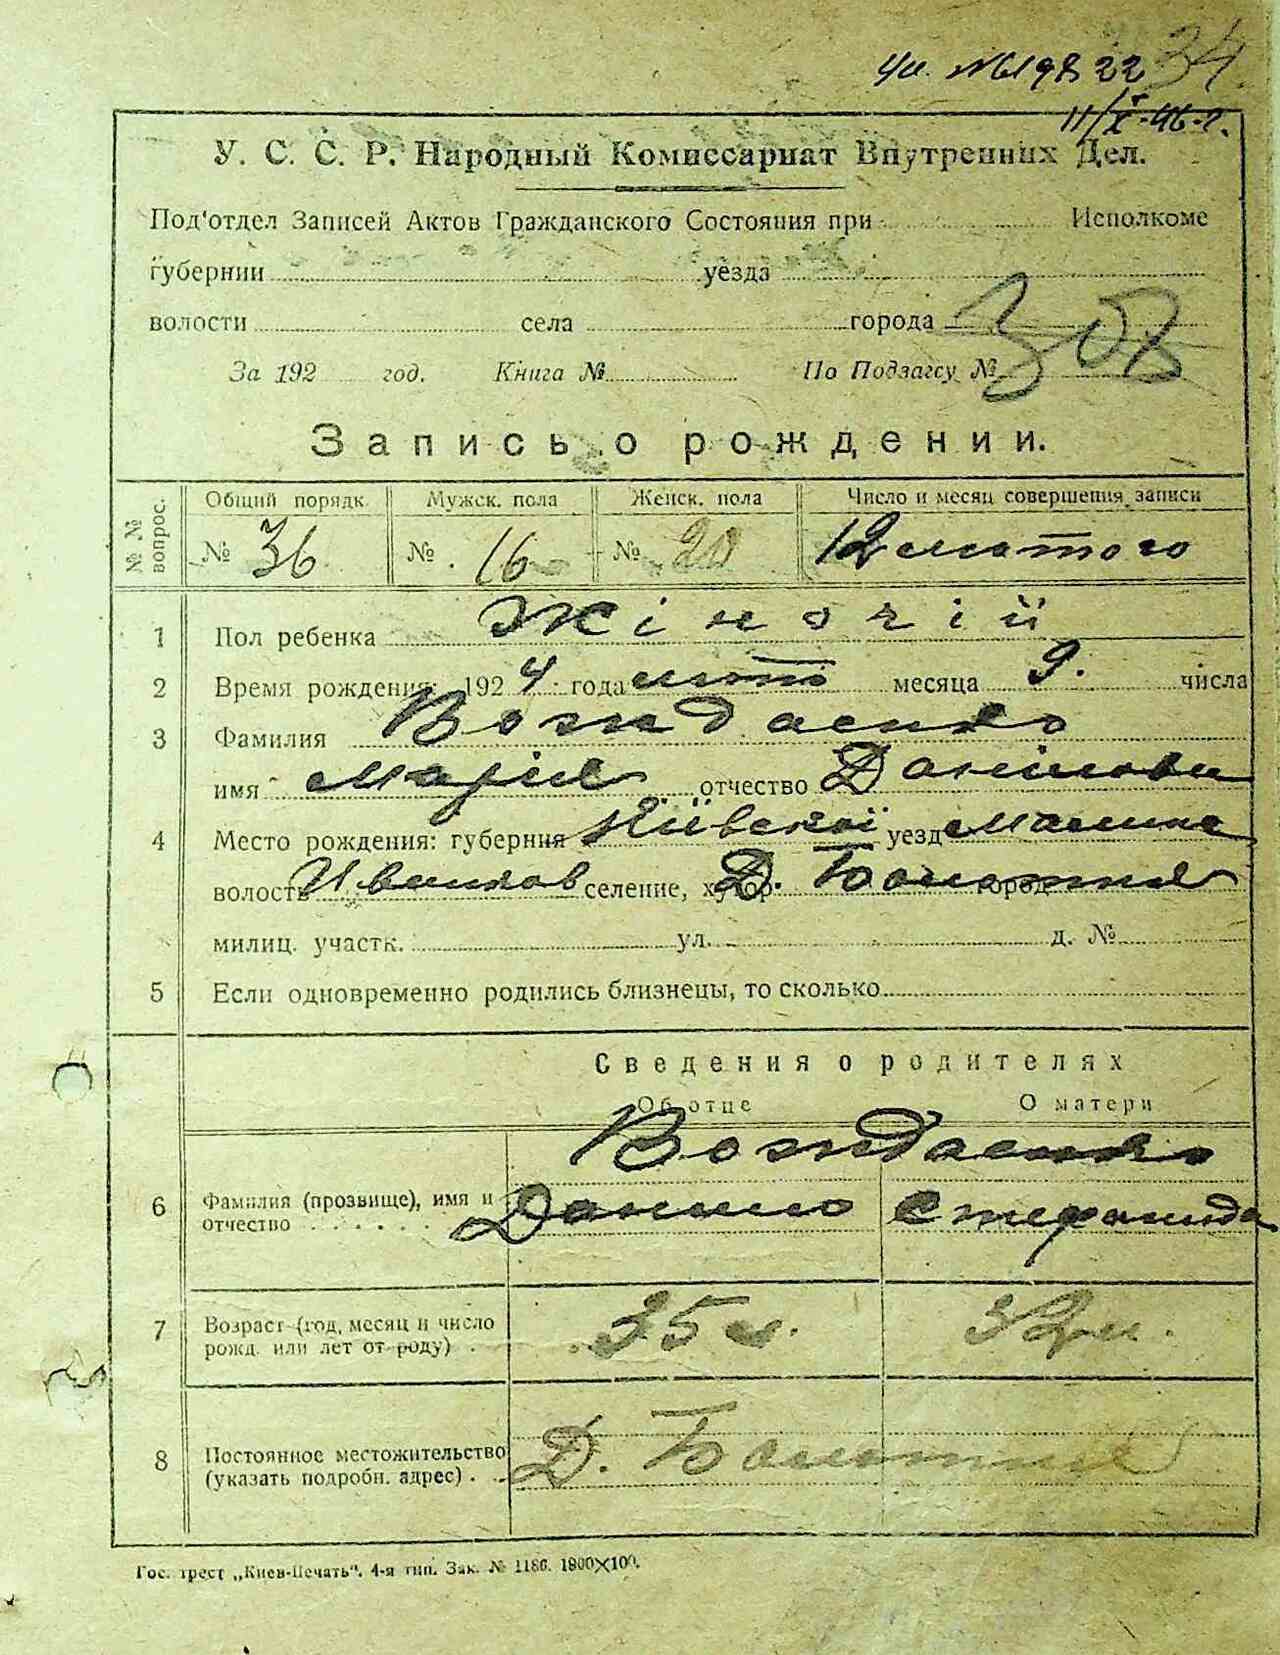 34
У. С. С. Р. Народный Комиссариат Внутренних Дел.
Под'отдел Записей Актов Гражданского Состояния при Исполкоме
губернии уезда
волости села города
За 192 год. Книга № По Подзагсу №
Запись о рождении.
№ № вопрос. Общий порядк. Мужск. пола Женск. пола Число и месяц совершения записи
№ 36 № 16 № 20 12 лютого
1 Пол ребенка Жіночій
2 Время рождения: 1924 года месяца 9. числа
3 Фамилия
имя Марія отчество
4 Место рождения: губерния Київської уезд
волость селение, хутор город Д.
милиц. участк. ул. д. №
5 Если одновременно родились близнецы, то сколько
Сведения о родителях
Об отце О матери
6 Фамилия (прозвище), имя и отчество
Данило Степанида
7 Возраст (год, месяц и число рожд. или лет от роду) 35 л. 32 л.
8 Постоянное местожительство (указать подробн. адрес) Д.
Гос. трест „Киев-Печать“. 4-я тип. Зак. № 1186. 1800×100.